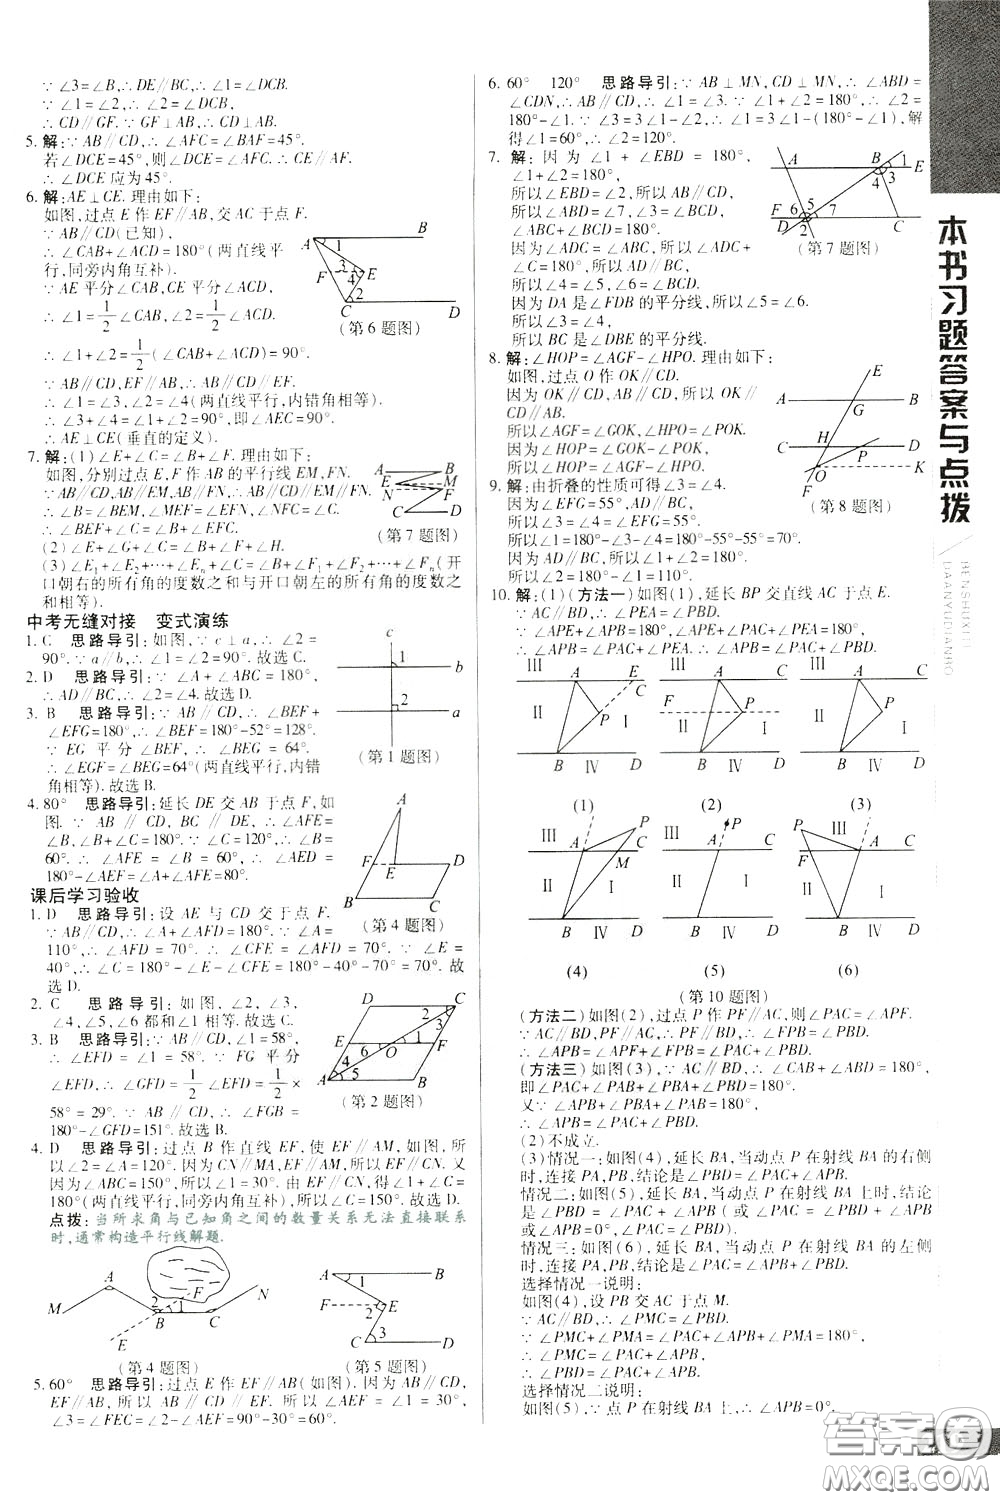 ∵∠3=∠B,∴DE∥BC,∴∠1=∠DCB.
∵∠1=∠2,∴∠2=∠DCB,
∴CD∥GF.∵GF⊥AB,∴CD⊥AB.
5.解:∵AB∥CD,∴∠AFC=∠BAF=45°.
若∠DCE=45°,则∠DCE=∠AFC.∴CE∥AF.
∴∠DCE应为45°.
6.解:AE⊥CE.理由如下:
如图,过点E作EF∥AB,交AC于点F.
∵AB∥CD(已知),
∴∠CAB+∠ACD=180°(两直线平
行,同旁内角互补).
∵AE平分∠CAB,CE平分∠ACD,
∴∠1=1/2∠CAB,∠2=1/2∠ACD,
∴∠1+∠2=1/2(∠CAB+∠ACD)=90°.
∵AB∥CD,EF∥AB,∴AB∥CD∥EF.
∴∠3=∠1,∠4=∠2(两直线平行,内错角相等).
∴∠3+∠4=∠1+∠2=90°,即∠AEC=90°.
∴AE⊥CE(垂直的定义).
(第6题图)
7.解:(1)∠E+∠C=∠B+∠F.理由如下:
如图,分别过点E,F作AB的平行线EM,FN.
∵AB∥CD,∴AB∥EM∥NF∥CD,
∴∠B=∠BEM,∠MEF=∠EFN,∠NFC=∠C.
∴∠BEF+∠C=∠B+∠EFC.
(2)∠E+∠G+∠C=∠B+∠F+∠H.
(3)∠E1+∠E2+…+∠En+∠C=∠B+∠F1+∠F2+…+∠Fn(开
口朝右的所有角的度数之和与开口朝左的所有角的度数之
和相等).
(第7题图)
中考无缝对接 变式演练
1.C 思路导引:如图,∵c⊥a,∴∠2=
90°.∵a∥b,∴∠1=∠2=90°.故选C.
2.D 思路导引:∵∠A+∠ABC=180°,
∴AD∥BC,∴∠2=∠4.故选D.
3.B 思路导引:∵AB∥CD,∴∠BEF+
∠EFG=180°,∴∠BEF=180°-52°=128°.
∵EG平分∠BEF,∴∠BEG=64°.
∴∠EGF=∠BEG=64°(两直线平行,内错
角相等).故选B.
(第1题图)
4.80° 思路导引:延长DE交AB于点F,如
图.∵AB∥CD,BC∥DE,∴∠AFE=
∠B,∠B+∠C=180°.∵∠C=120°,∴∠B=
60°.∴∠AFE=∠B=60°,∴∠AED=
180°-∠A-∠AFE=80°.
(第4题图)
课后学习验收
1.D 思路导引:设AE与CD交于点F.
∵AB∥CD,∴∠A+∠AFD=180°.∵∠A=
110°,∴∠AFD=70°.∴∠CFE=∠AFD=70°.∵∠E=
40°,∴∠C=180°-∠E-∠CFE=180°-40°-70°=70°.故
选D.
2.C 思路导引:如图,∠2,∠3,
∠4,∠5,∠6都和∠1相等.故选C.
3.B 思路导引:∵AB∥CD,
∴∠EFD=∠1=58°.∵FG平分
∠EFD,∴∠GFD=1/2∠EFD=1/2×
58°=29°.∵AB∥CD,∴∠FGB=
180°-∠GFD=151°.故选B.
(第2题图)
4.D 思路导引:过点B作直线EF,使EF∥AM,如图,所
以∠2=∠A=120°.因为CN∥MA,EF∥AM,所以EF∥CN.又
因为∠ABC=150°,所以∠1=30°.由EF∥CN,得∠1+∠C=
180°(两直线平行,同旁内角互补),所以∠C=150°.故选D.
点拨:当所求角与已知角之间的数量关系无法直接联系
时,通常构造平行线解题.
(第4题图) (第5题图)
5.60° 思路导引:过点E作EF∥AB(如图).∵AB∥CD,
EF∥AB,所以AB∥CD∥EF.所以∠AEF=∠1=30°,
∠3=∠FEC=∠2-∠AEF=90°-30°=60°.
6.60° 120° 思路导引:∵AB⊥MN,CD⊥MN,∴∠ABM=
∠CDN,∴AB∥CD,∴∠1=∠3.∵∠1+∠2=180°,∴∠2=
180°-∠1.∵∠3=∠2-∠1,∴∠1=3∠1-(180°-∠1),解
得∠1=60°,∴∠2=120°.
7.解:因为∠1+∠EBD=180°,
∠1+∠2=180°,
所以∠EBD=∠2,所以AB∥CD.
所以∠ABD=∠7,∠EBD=∠2.
因为∠ADC=∠ABC,所以∠ADC+
∠ABD=∠ABC+∠7=180°.
所以AD∥BC.
所以∠4=∠5,∠6=∠C.
因为DA是∠FDB的平分线,所以∠5=∠6.
所以∠3=∠4,
所以BC是∠DBE的平分线.
(第7题图)
8.解:∠HOP=∠AGF-∠HPO.理由如下:
如图,过点O作OK∥CD.
因为OK∥CD,AB∥CD,所以OK∥
CD∥AB.
所以∠AGF=∠GOK,∠HPO=∠POK.
因为∠HOP=∠GOK-∠POK,
所以∠HOP=∠AGF-∠HPO.
(第8题图)
9.解:由折叠的性质可得∠3=∠4.
因为∠EFG=55°,AD∥BC,
所以∠3=∠4=∠EFG=55°.
所以∠1=180°-∠3-∠4=180°-55°-55°=70°.
因为AD∥BC,所以∠1+∠2=180°.
所以∠2=180°-∠1=110°.
10.解:(1)(方法一)如图(1),延长BP交直线AC于点E.
∵AC∥BD,∴∠PEA=∠PBD.
∵∠APE+∠APB=180°,∠APE+∠PAE+∠PEA=180°,
∴∠APB=∠PAE+∠PEA,∴∠APB=∠PAC+∠PBD.
(1) (2) (3)
(4) (5) (6)
(第10题图)
(方法二)如图(2),过点P作PF∥AC,则∠PAC=∠APF.
∵AC∥BD,PF∥AC,∴PF∥BD,∴∠FPB=∠PBD.
∴∠APB=∠APF+∠FPB=∠PAC+∠PBD.
(方法三)如图(3),∵AC∥BD,∴∠CAB+∠ABD=180°,
即∠PAC+∠PAB+∠PBA+∠PBD=180°.
又∵∠APB+∠PBA+∠PAB=180°,
∴∠APB=∠PAC+∠PBD.
(2)不成立.
(3)情况一:如图(4),延长BA,当动点P在射线BA的右侧
时,连接PA,PB,结论是∠PBD=∠PAC+∠APB.
情况二:如图(5),延长BA,当动点P在射线BA上时,结论
是∠PBD=∠PAC+∠APB(或∠PAC=∠PBD+∠APB
或∠APB=0°,∠PAC=∠PBD).
情况三:如图(6),延长BA,当动点P在射线BA的左侧
时,连接PA,PB,结论是∠PAC=∠APB+∠PBD.
选择情况一说明:
如图(4),设PB交AC于点M.
∵AC∥BD,∴∠PMC=∠PBD.
∵∠PMC+∠PMA=∠PAC+∠APB+∠PMA=180°,
∴∠PMC=∠PAC+∠APB,
∴∠PBD=∠PAC+∠APB.
选择情况二说明:
如图(5),∵点P在射线BA上,∴∠APB=0°.
本书习题答案与点拨
BENSHUXITI
DAANYUDIANBO
答案圈
MXQE.COM